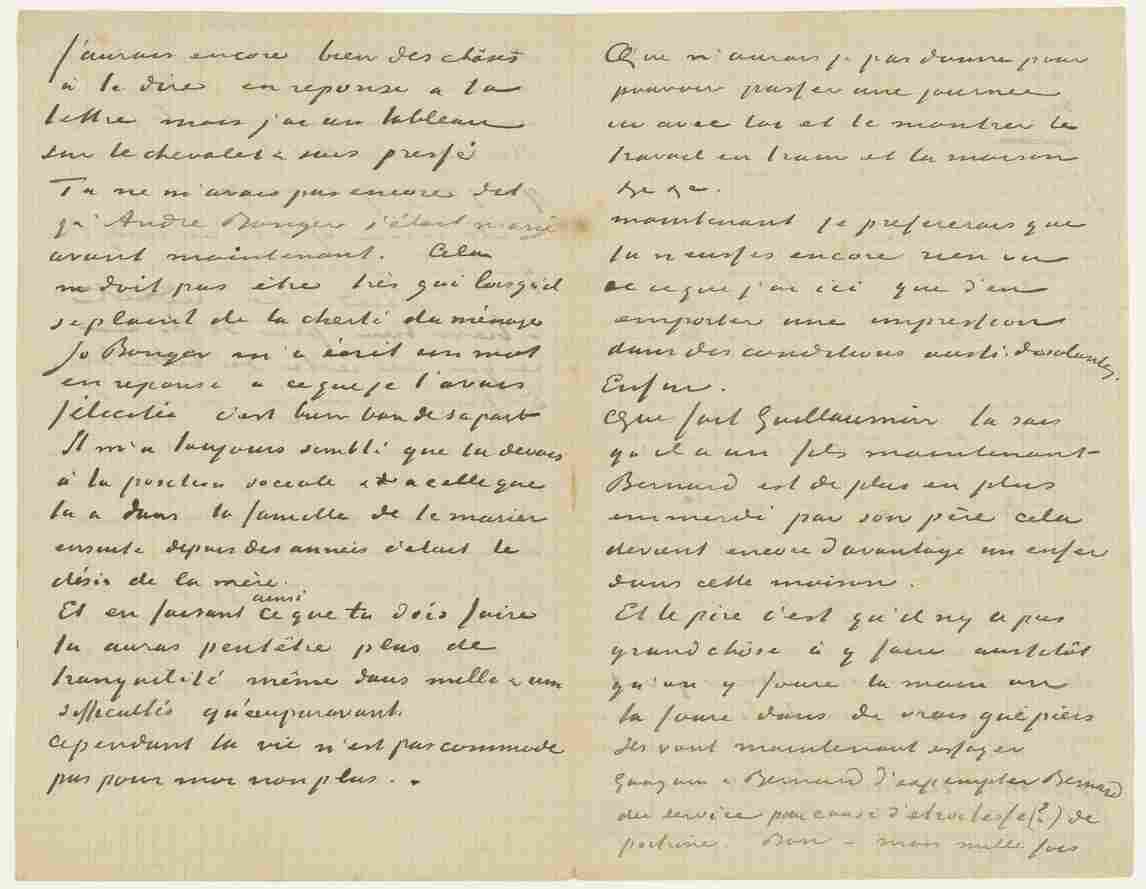 J'aurais encore bien des choses
à te dire en reponse a ta
lettre mais j'ai un tableau
sur le chevalet & suis pressé
Tu ne m'avais pas encore dit
qu' André Bonger s'était marié
avant maintenant. Cela
ne doit pas être très gai lorsqu'il
se plaint de la cherté du ménage
Jo Bonger m'a écrit un mot
en reponse a ce que je l'avais
félicitée c'est bien bon de sa part
Il m'a toujours semblé que tu devais
à ta position sociale et a celle que
tu a dans ta famille de te marier
ensuite depuis des années c'etait le
désir de la mère.
Et en faisant ainsi ce que tu dois faire
tu auras peutêtre plus de
tranquilité même dans mille & une
difficultés qu'auparavant.
Cependant la vie n'est pas commode
pas pour moi non plus. .
Que n'aurais je pas donné pour
pouvoir passer une journee
ici avec toi et te montrer le
travail en train et la maison
&c &c.
maintenant je prefererais que
tu n'eusses encore rien vu
de ce que j'ai ici que d'en
emporter une impression
dans des conditions aussi desolantes.
Enfin.
Que fait Guillaumin tu sais
qu'il a un fils maintenant
Bernard est de plus en plus
emmerdé par son père cela
devient encore d'avantage un enfer
dans cette maison.
Et le pire c'est qu'il n'y a pas
grand chôse à y faire aussitôt
qu'on y foure la main on
la foure dans de vrais guêpiers
Ils vont maintenant essayer
Gauguin & Bernard d'exempter Bernard
du service pour cause d'etroitesse (?) de
poitrine. Bon – mais mille fois